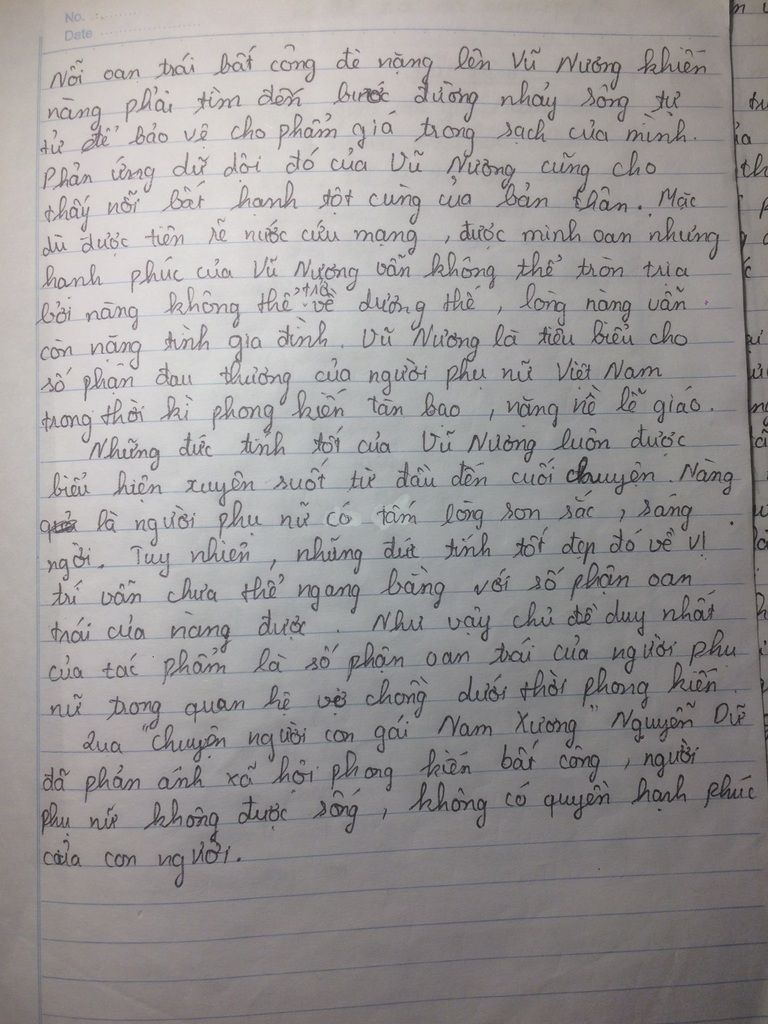 No.
Date
Nỗi oan trái bất công đè nặng lên Vũ Nương khiến
nàng phải tìm đến bước đường nhảy sông tự
tử để bảo vệ cho phẩm giá trong sạch của mình.
Phản ứng dữ dội đó của Vũ Nương cũng cho
thấy nỗi bất hạnh tột cùng của bản thân. Mặc
dù được tiên rẽ nước cứu mạng, được minh oan nhưng
hạnh phúc của Vũ Nương vẫn không thể tròn trịa
bởi nàng không thể trở về dương thế, lòng nàng vẫn
còn nặng tình gia đình. Vũ Nương là tiêu biểu cho
số phận đau thương của người phụ nữ Việt Nam
trong thời kì phong kiến tàn bạo, nặng nề lễ giáo.
Những đức tính tốt của Vũ Nương luôn được
biểu hiện xuyên suốt từ đầu đến cuối chuyện. Nàng
là người phụ nữ có tấm lòng son sắc, sáng
ngời. Tuy nhiên, những đức tính tốt đẹp đó về vị
trí vẫn chưa thể ngang bằng với số phận oan
trái của nàng được. Như vậy chủ đề duy nhất
của tác phẩm là số phận oan trái của người phụ
nữ trong quan hệ vợ chồng dưới thời phong kiến.
Qua "Chuyện người con gái Nam Xương" Nguyễn Dữ
đã phản ánh xã hội phong kiến bất công, người
phụ nữ không được sống, không có quyền hạnh phúc
của con người.